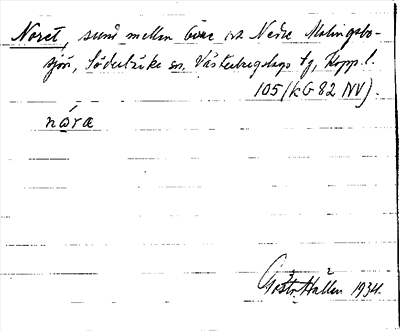 Noret, sund mellan Övre och Nedre Malingsbo-
sjön, Söderbärke sn, Västerbergslags tg, Kopp. l.
105 (kG 82 NV).
nåra
Gösta Hallen 1934.